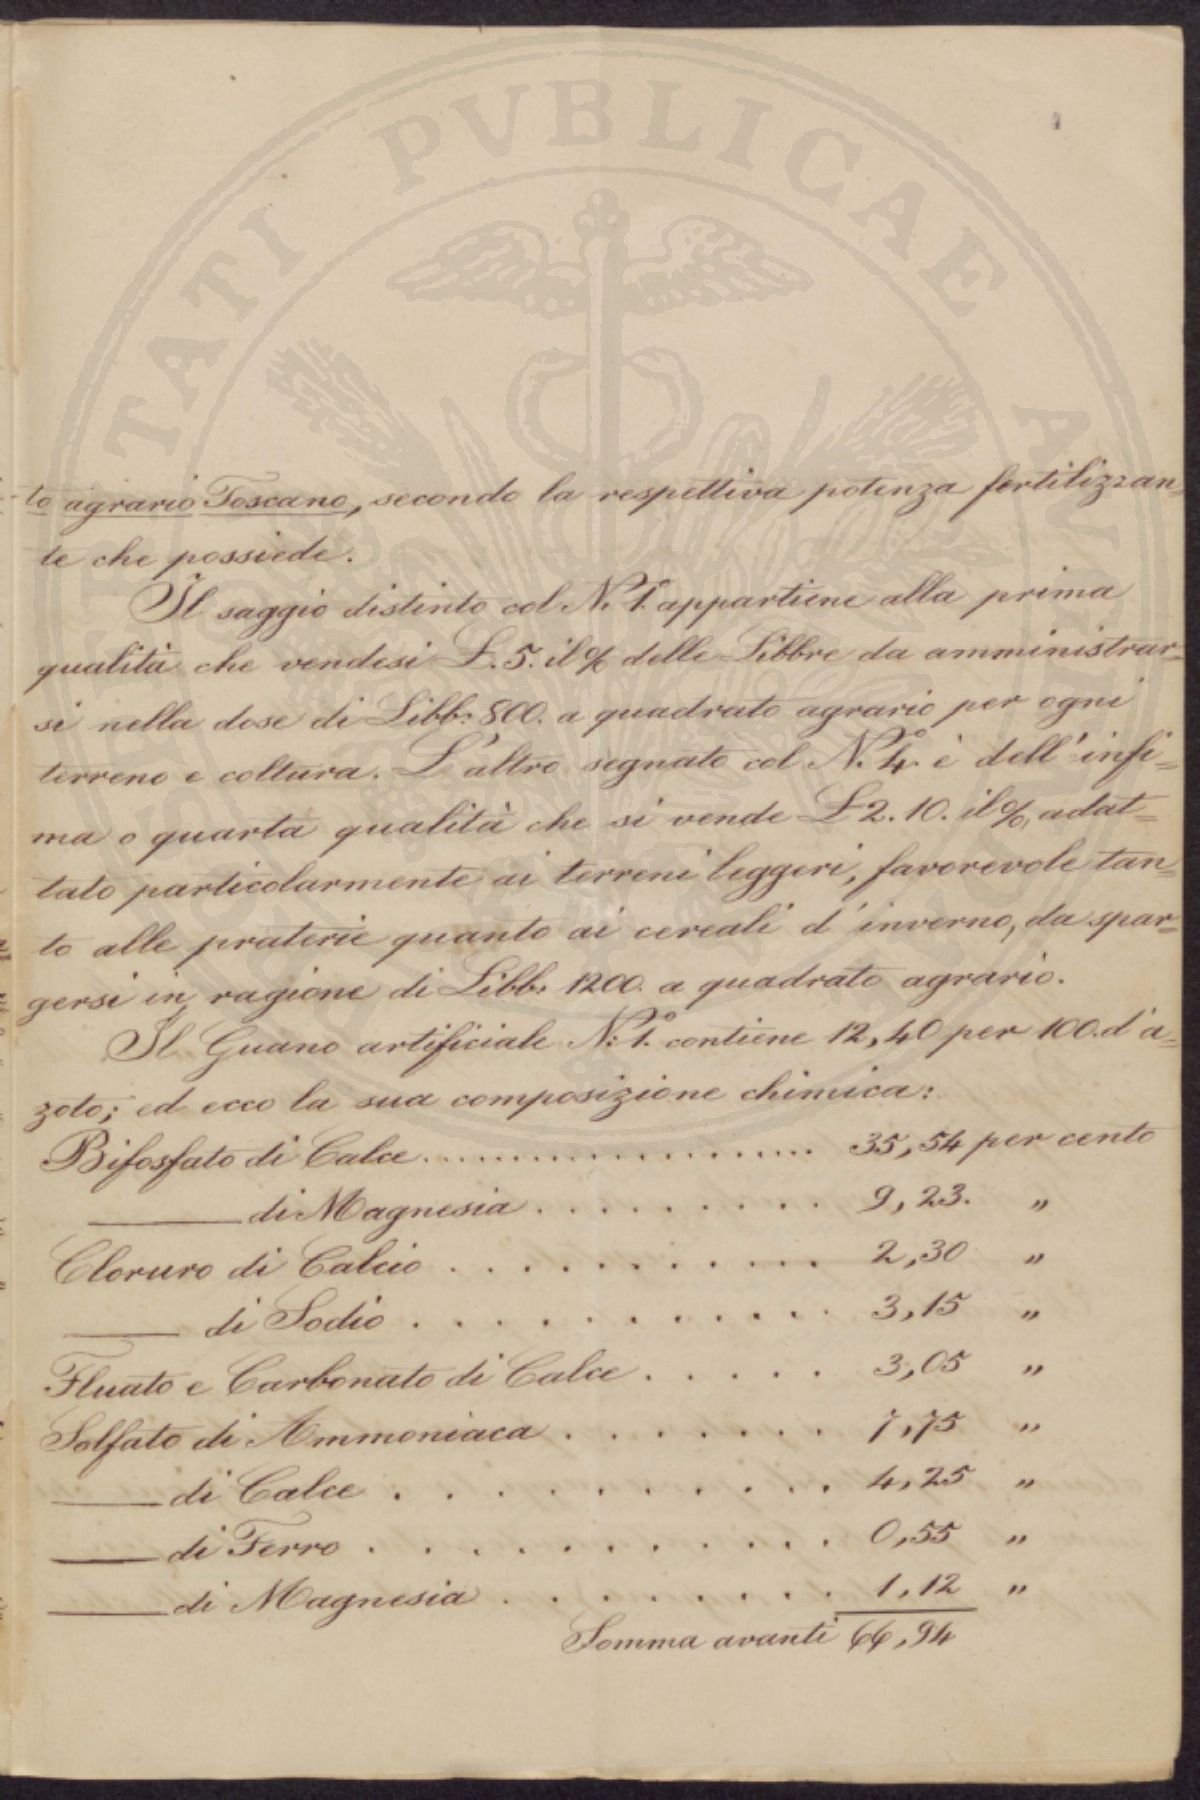 PROSPERITATI PVBLICAE AVGENDAE
to agrario Toscano, secondo la respettiva potenza fertilizzan=
te che possiede.
Il saggio distinto col N.° 1. appartiene alla prima
qualità che vendesi £. 5. il % delle Libbre da amministrar=
si nella dose di Libb: 800. a quadrato agrario per ogni
terreno e coltura. L'altro segnato col N.° 4. è dell'infi=
ma o quarta qualità che si vende £ 2. 10. il %, adat=
tato particolarmente ai terreni leggeri, favorevole tan=
to alle praterie quanto ai cereali d'inverno, da spar=
gersi in ragione di Libb: 1200. a quadrato agrario.
Il Guano artificiale N.° 1. contiene 12,40 per 100. d'a=
zoto; ed ecco la sua composizione chimica:
Bifosfato di Calce .................. 35,54 per cento
______ di Magnesia ......... 9,23. "
Cloruro di Calcio ............ 2,30 "
_____ di Sodio ............. 3,15 "
Fluato e Carbonato di Calce ...... 3,05 "
Solfato di Ammoniaca ........ 7,75 "
____ di Calce ........... 4,25 "
____ di Ferro ............ 0,55 "
____ di Magnesia ......... 1,12 "
Somma avanti 66,94